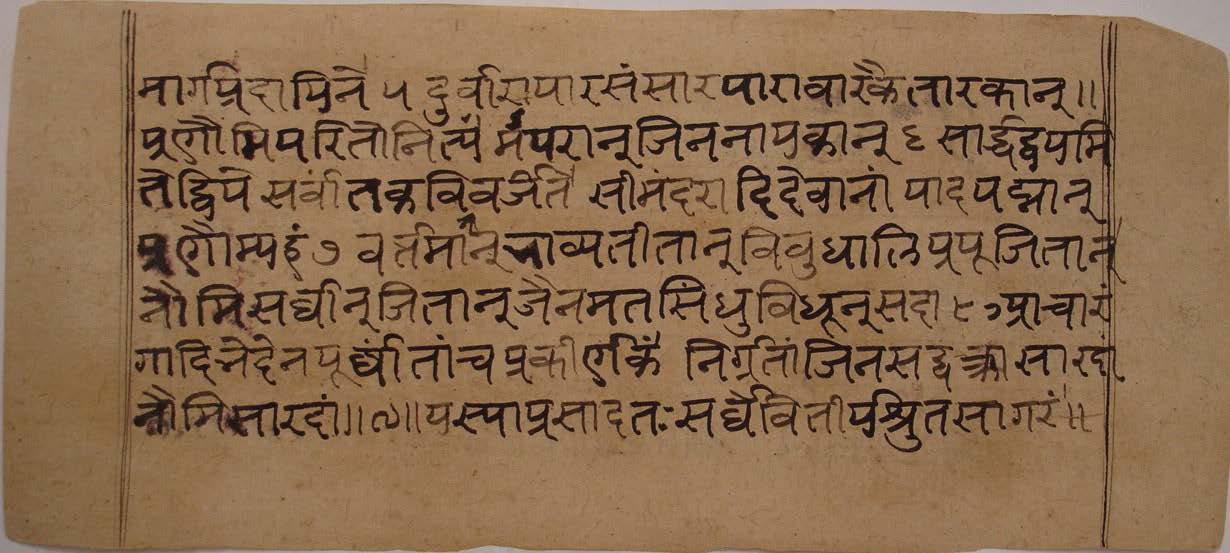 मार्गप्रदायिने ५ दुर्वारापारसंसारपारावारैकतारकान्॥
प्रणौमिपरितोनित्यं परान्जिननायकान् ६ सार्द्धद्वयमि
तेद्विपे विवर्जिते सीमंदरादिदेवानां पादपद्मान्
प्रणौम्यहं ७ वर्तमानान्भाव्यतीतान्विबुधालिप्रपूजितान्
नौमिसर्वान्जितान्जैनमतसिंधुविधून्सदा ८
गादिभेदेनपूर्वा तांच प्रकीर्णकै निर्गतांजिनसद्वक्त्रा सारदां
नौमिसारदां॥९॥यस्याप्रसादतः सर्वै श्रुतसागरं॥